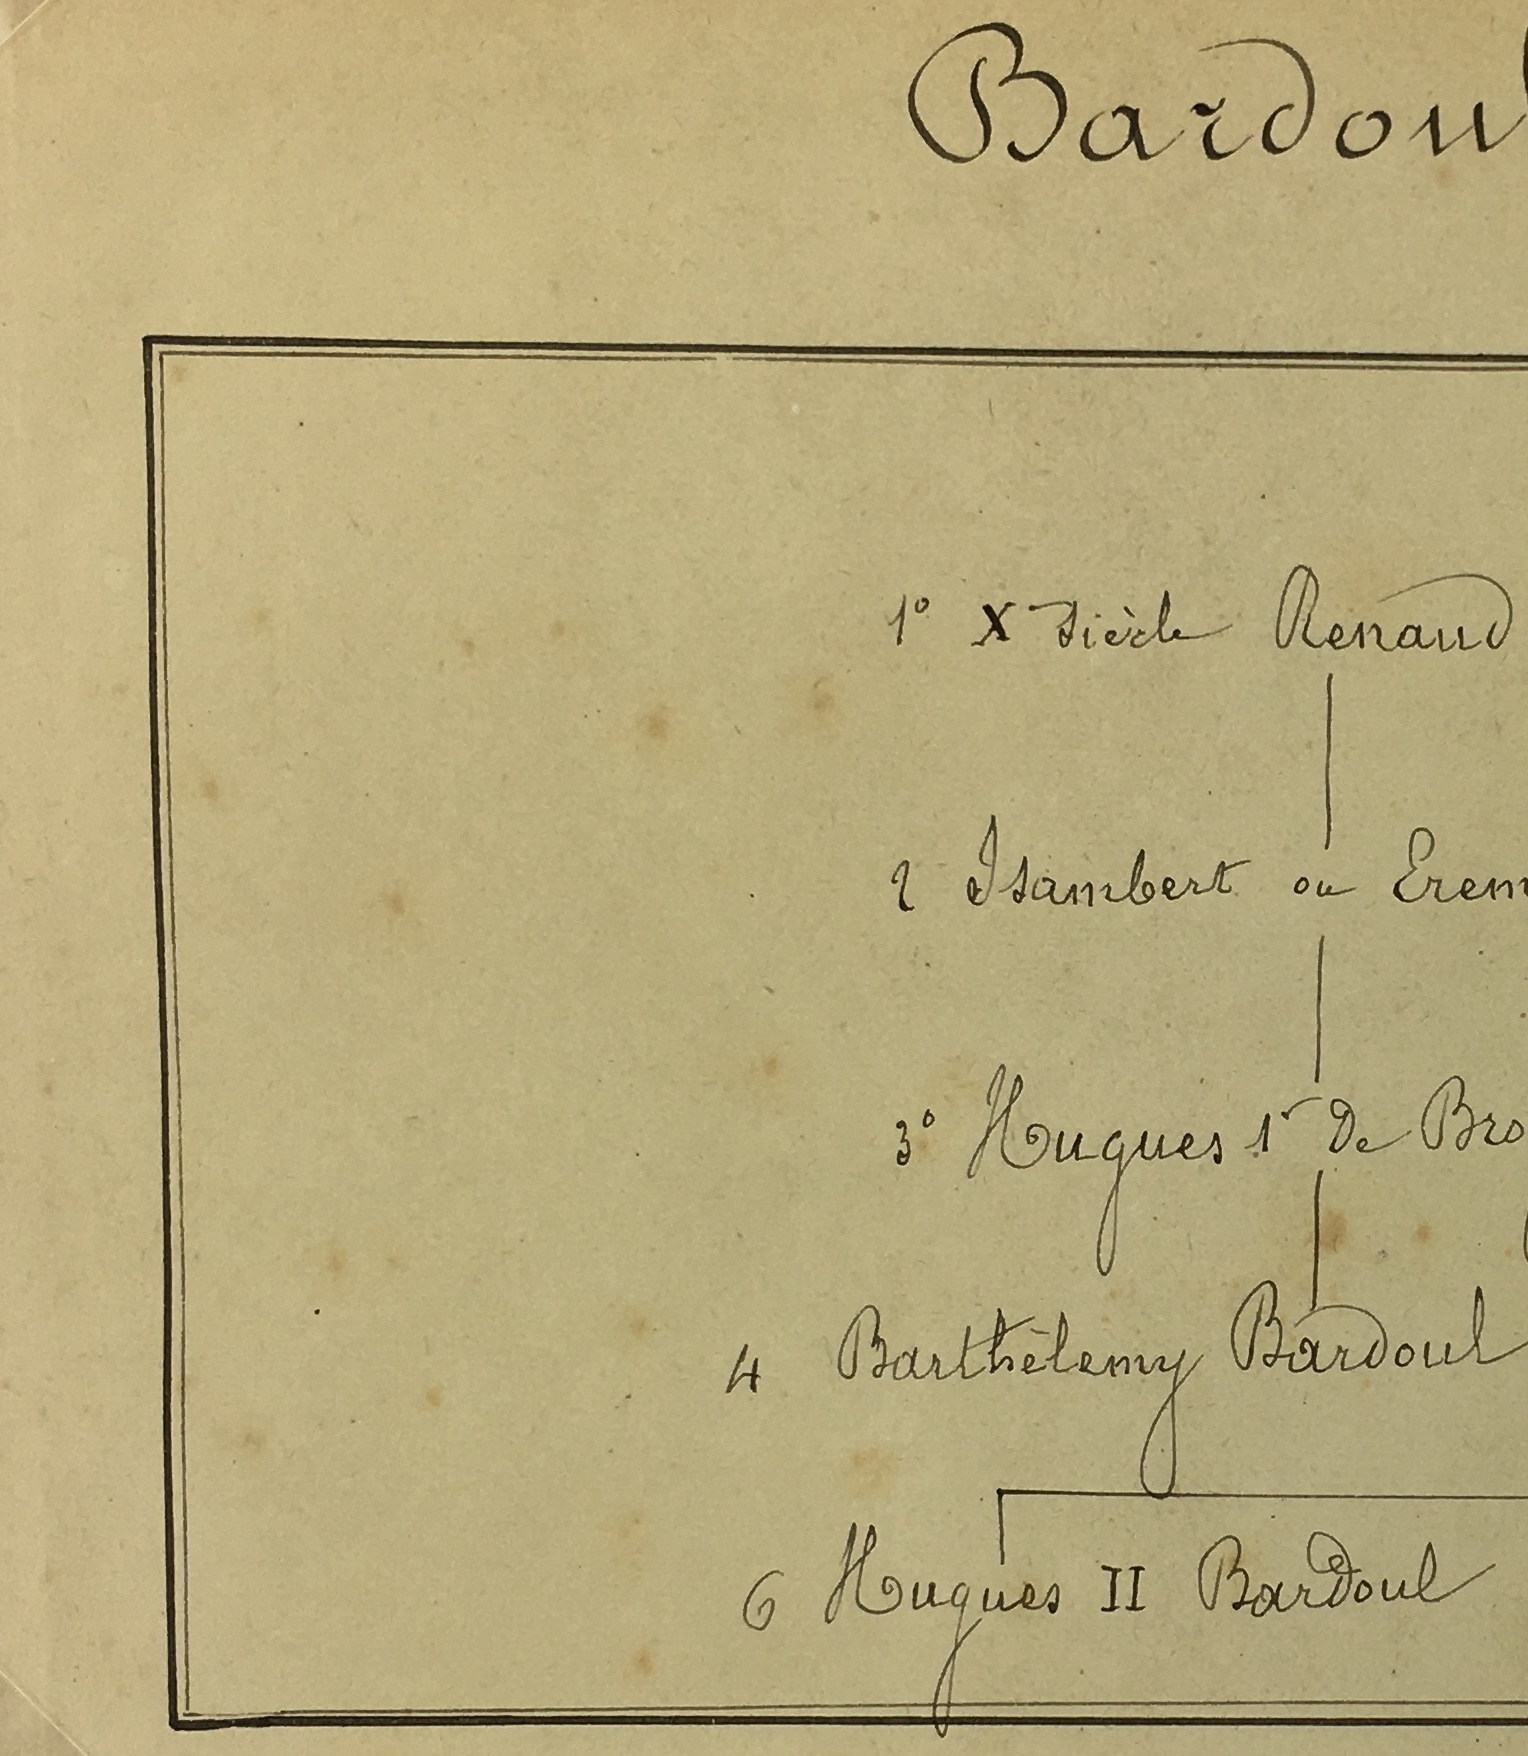 Bardoul
1° X siècle Renaud
2 Isambert ou Erem
3° Hugues 1r de Bro
4 Barthélemy Bardoul
6 Hugues II Bardoul